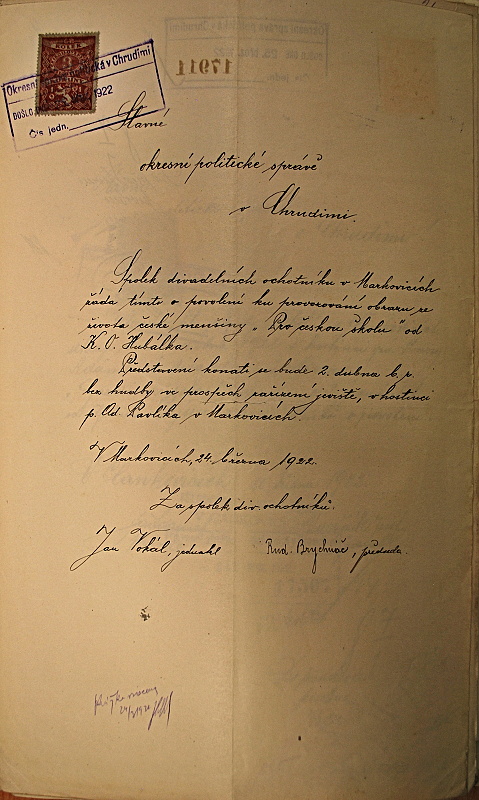 KOLEK
3
Okresní politická v Chrudimi
DOŠLO 1922
Čís. jedn.
17911
Slavné
okresní politické správě
v Chrudimi.
Spolek divadelních ochotníku v Markovicích
řáda tímto o povolení ku provozování obrazu ze
života české menšiny „Pro českou školu" od
K. O. Hubálka.
Představení konati se bude 2. dubna b. r.
bez hudby ve prospěch zařízení jeviště, v hostinci
p. Od. Pavlíka v Markovicích.
V Markovicích, 24. března 1922.
Za spolek div. ochotníků.
Jan Vokál, jednatel
Rud. Brychnáč, předseda.